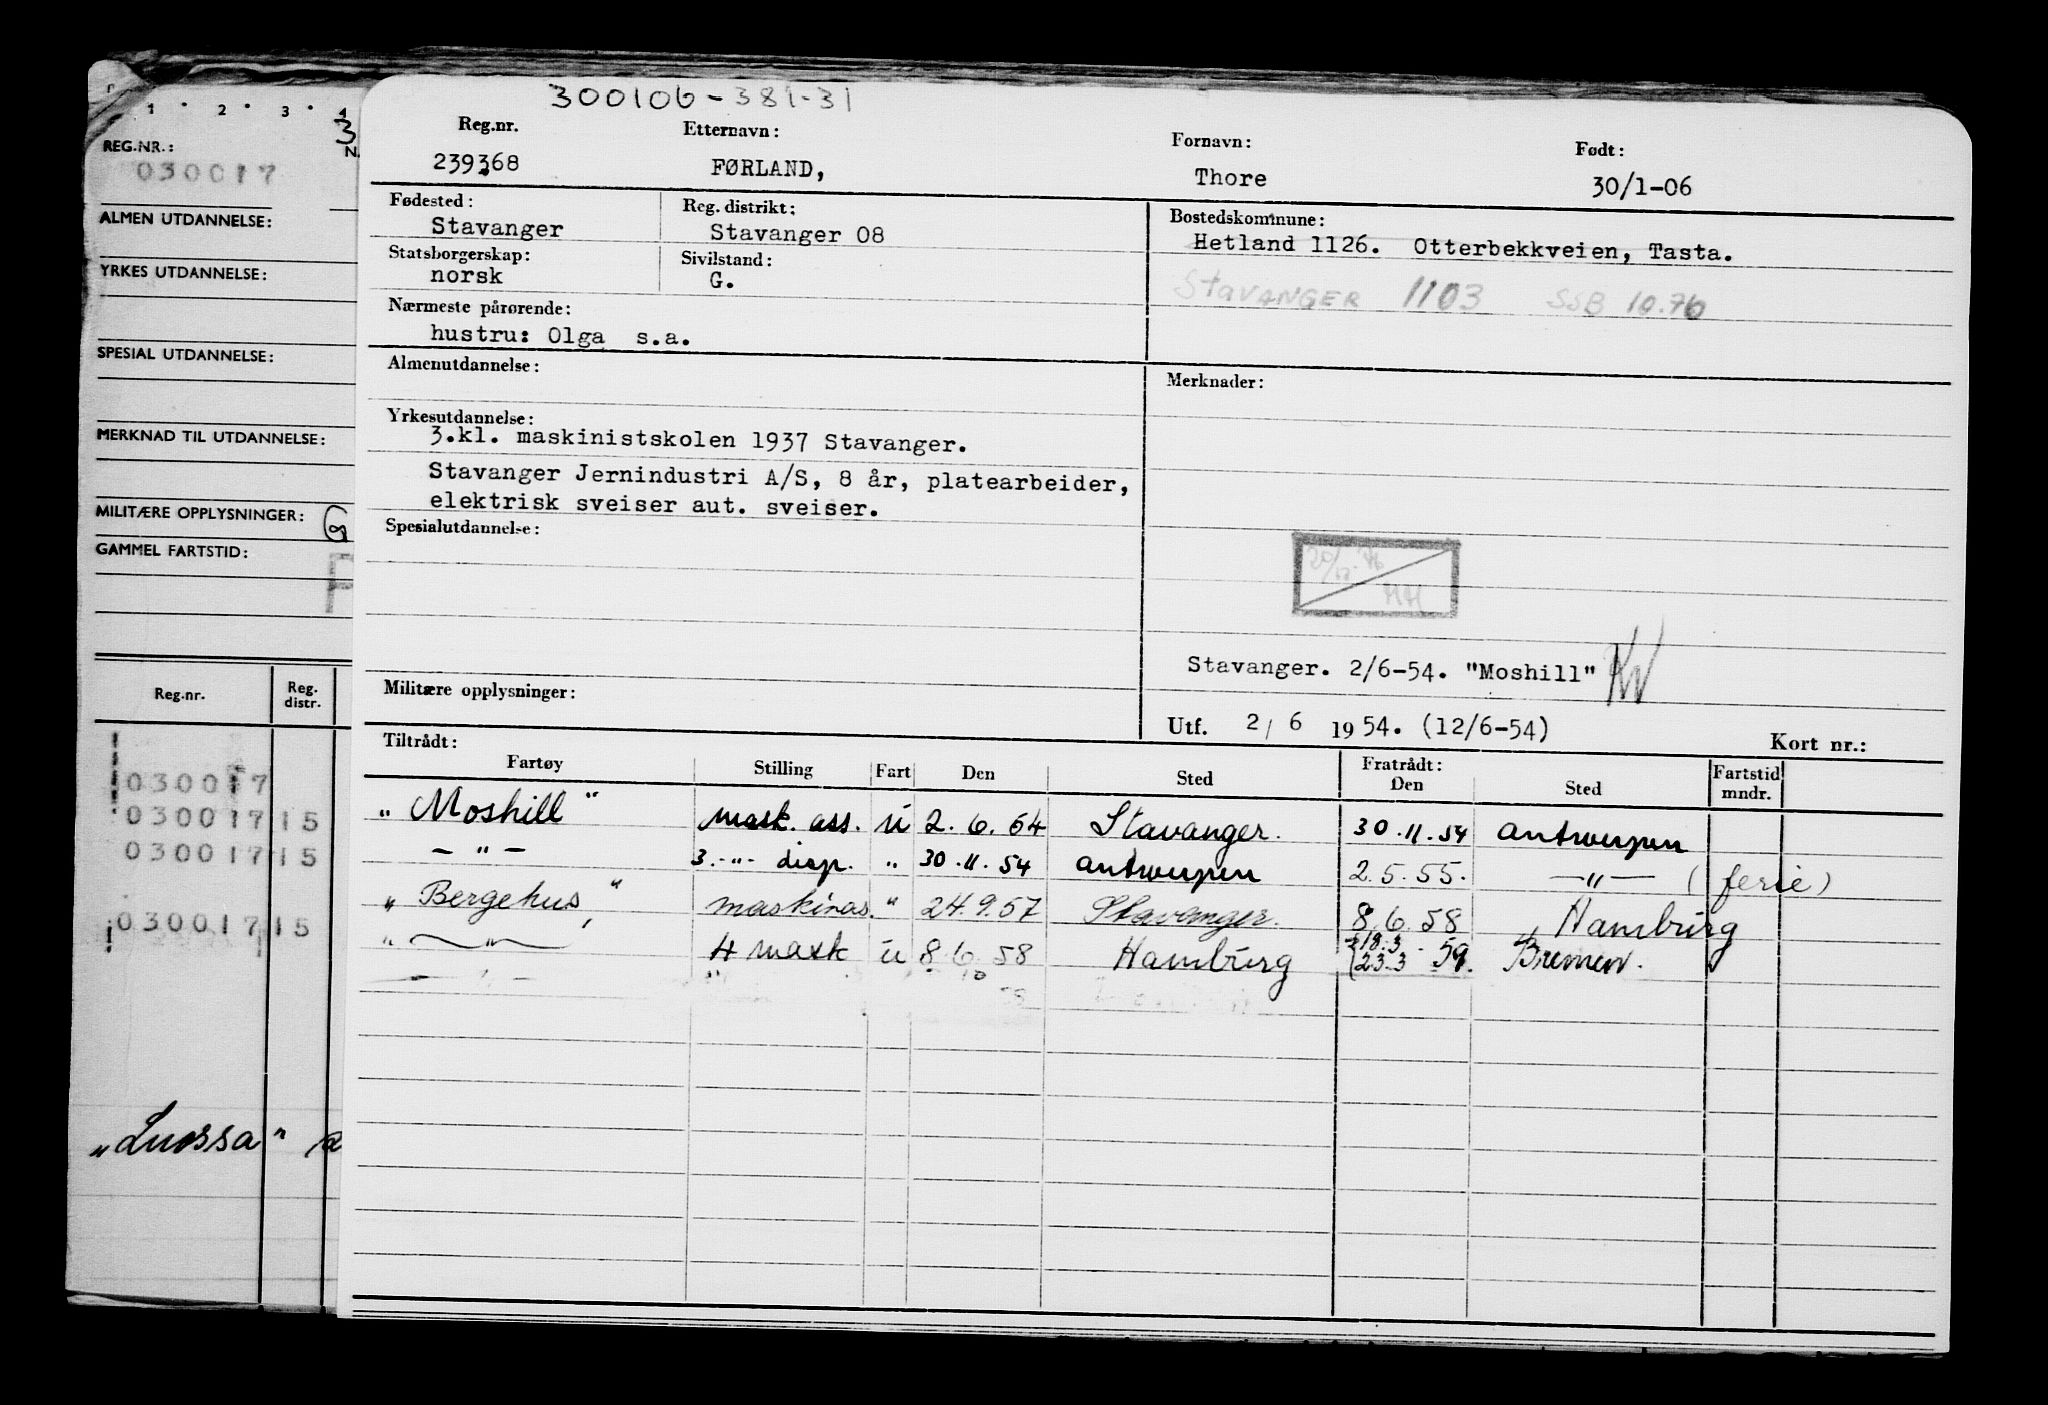 300106-381-31
1 · 2 · 3 · 4
REG.NR.:
030017
ALMEN UTDANNELSE:
YRKES UTDANNELSE:
SPESIAL UTDANNELSE:
MERKNAD TIL UTDANNELSE:
MILITÆRE OPPLYSNINGER: G
GAMMEL FARTSTID:
Reg.nr. Reg. distr.
030017
030017 15
030017 15
030017 15
"Luossa" a
Reg.nr. Etternavn: Fornavn: Født:
239368 FØRLAND, Thore 30/1-06
Fødested: Reg. distrikt: Bostedskommune:
Stavanger Stavanger 08 Hetland 1126. Otterbekkveien, Tasta.
Statsborgerskap: Sivilstand:
norsk G. Stavanger 1103 SSB 10.76
Nærmeste pårørende:
hustru: Olga s.a.
Almenutdannelse: Merknader:
Yrkesutdannelse:
3.kl. maskinistskolen 1937 Stavanger.
Stavanger Jernindustri A/S, 8 år, platearbeider,
elektrisk sveiser aut. sveiser.
Spesialutdannelse:
HH
Stavanger. 2/6-54. "Moshill"
Militære opplysninger:
Utf. 2/ 6 1954. (12/6-54) Kort nr.:
Tiltrådt: Fratrådt:
Fartøy Stilling Fart Den Sted Den Sted Fartstid mndr.
"Moshill" mask. ass. u 2.6.54 Stavanger. 30.11.54 Antwerpen
-"- 3.-"- disp. " 30.11.54 Antwerpen 2.5.55. -"- (ferie)
"Bergehus," maskinas. " 24.9.57 Stavanger. 8.6.58 Hamburg
"-"- 4 mask u 8.6.58 Hamburg 18.3 23.3 59. Bremen.
- " - " 10 58